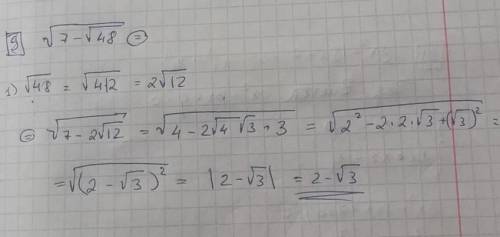 9 √(7-√48) ⊜
1) √48 = √(4·12) = 2√12
⊜ √(7-2√12) = √(4-2√4 √3+3) = √(2²-2·2·√3+(√3)²) =
= √((2-√3)²) = |2-√3| = 2-√3